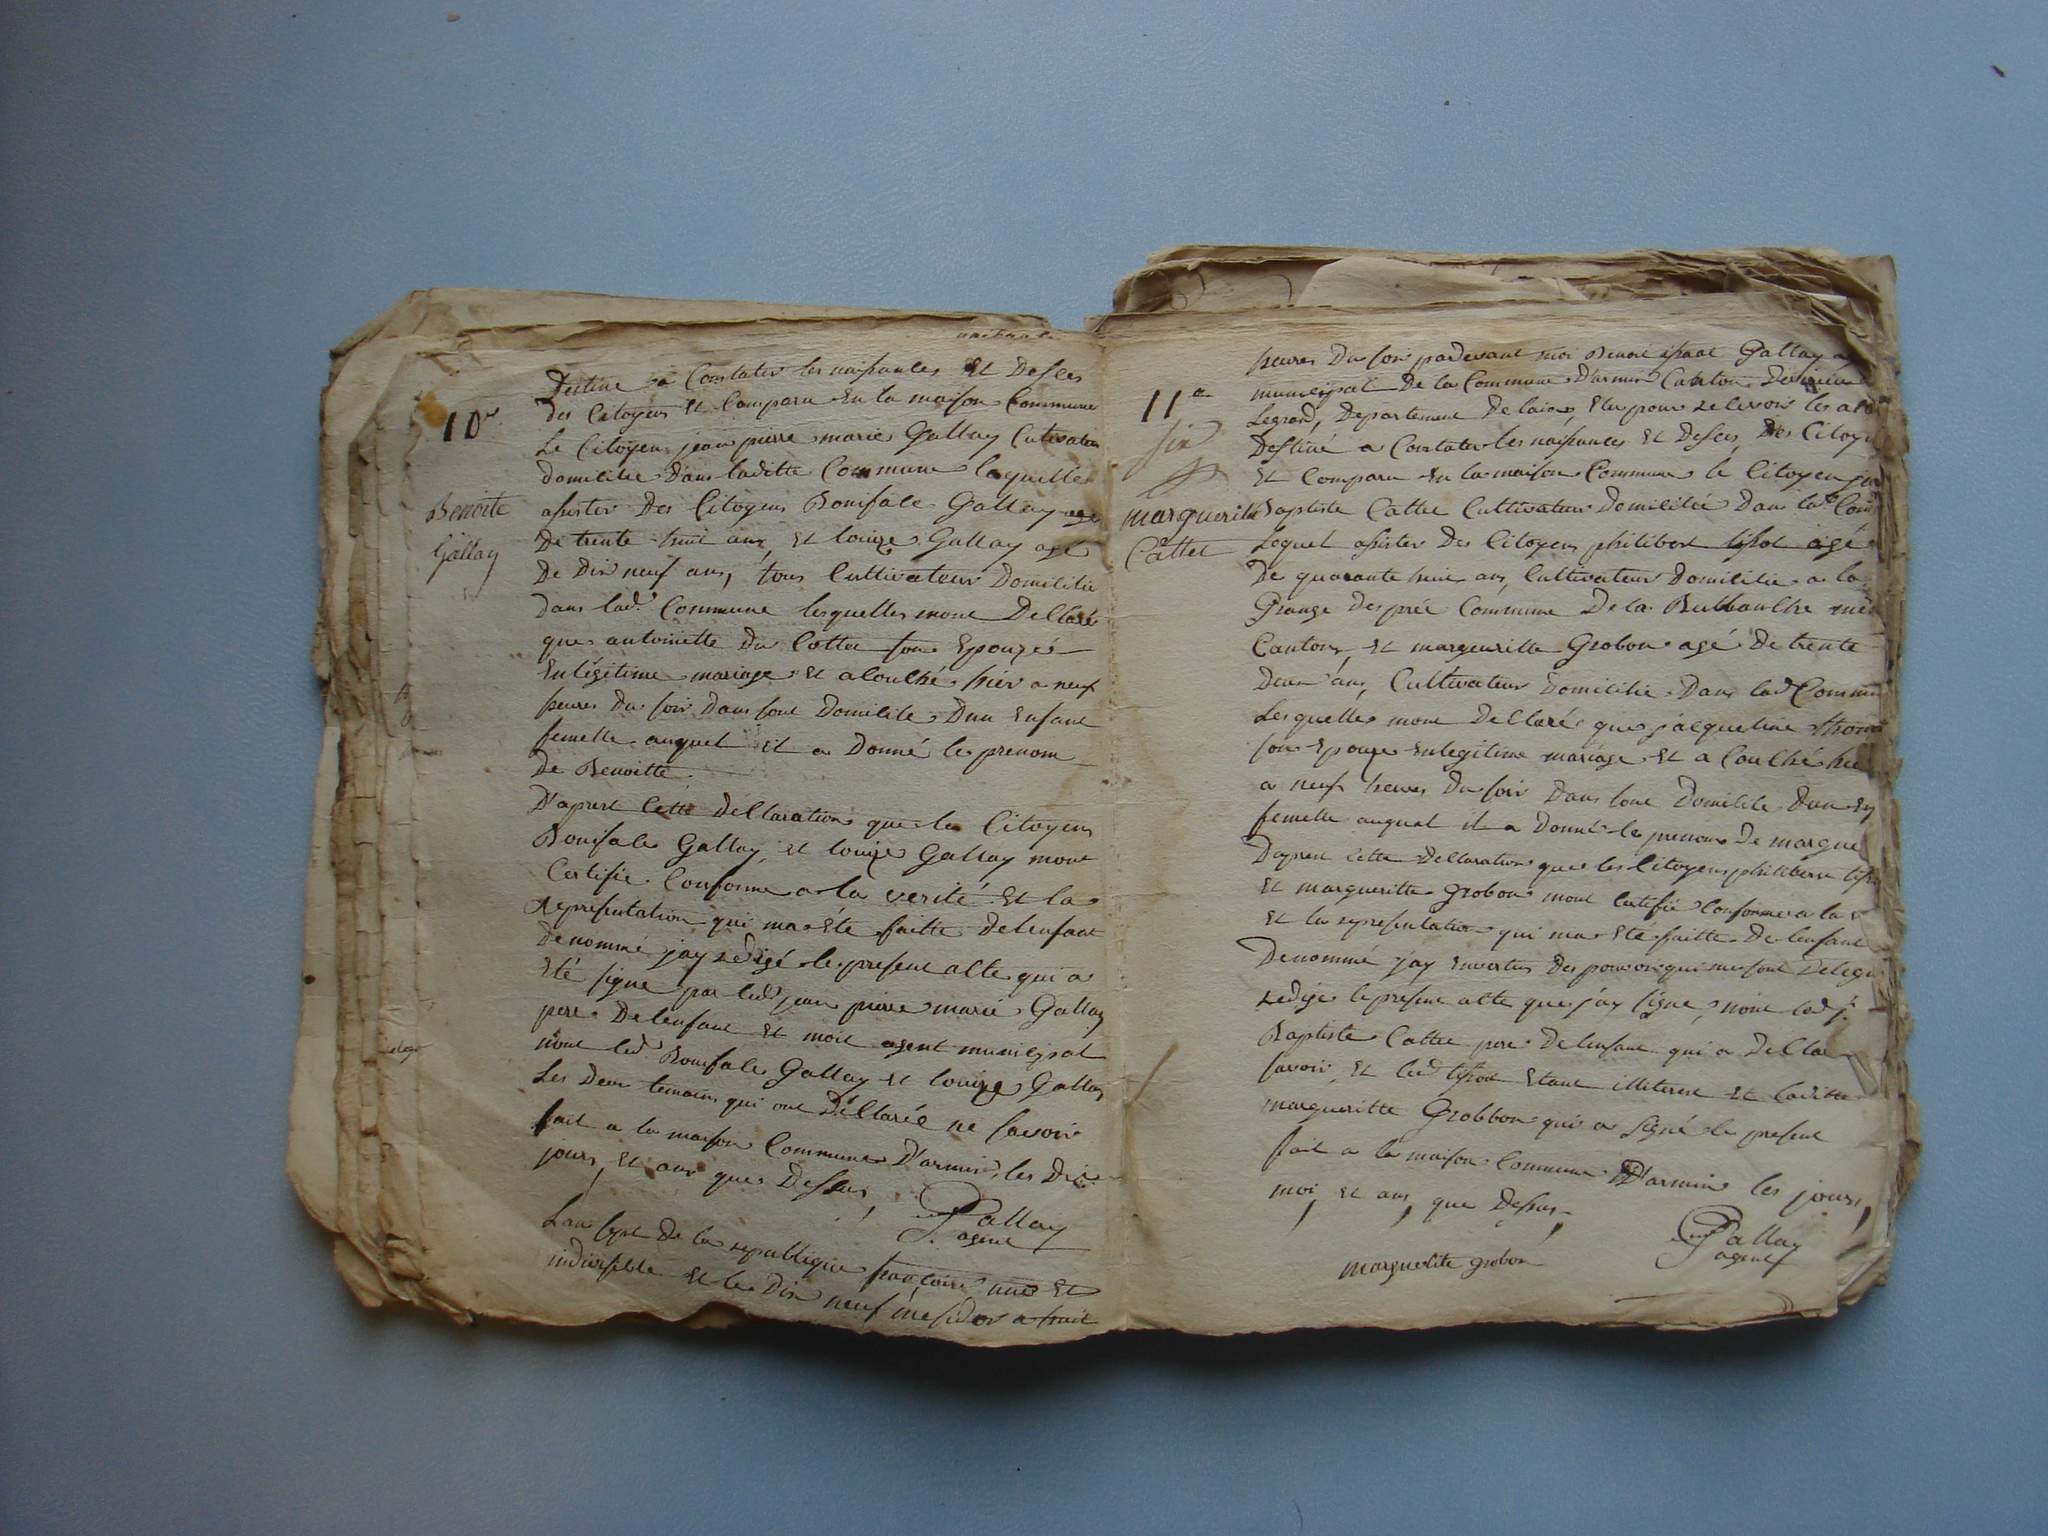 naissance
10e
Benoite
Gallay
Destiné a Constater les naissances Et Desces
des Citoyens Et Comparu En la maison Commune
Le Citoyen jean pierre marie Gallay Cutivateur
domicilié Dans laditte Commune laquelle
assister Des Citoyens Boniface Gallay agé
De trente huit ans, Et louize Gallay agé
De Dix neuf ans, tous Cultivateur Domicilié
dans lad. Commune lesquelles mont Declaré
que antoinette Du Cottet son Epouzée
En légitime mariage Et a Couché hier a neuf
heures Du soir Dans sont Domicile Dun Enfant
femelle auquel il a Donné le prenom
De Benoitte.
D'aprest Cette Declaration que les Citoyens
Boniface Gallay, Et louize Gallay mont
Certifié Conforme a la verité Et la
representation qui ma Eté faitte De lenfant
Denommé jay redigé le present acte qui a
Eté signe par led. jean pierre marie Gallay
pere De lenfant Et moit agent municipal
nont led. Boniface Gallay Et louize Gallay
Les Deux temoins qui ont Déclarée ne savoir
fait a la maison Commune D'armix les Dix
jours, Et ans que Dessus,
Gallay
agent
Lan sept De la republique francoize une Et
indivisible Et le Dix neuf mesidor a huit
11e
marguerite
Cattet
heures Du soir pardevant moi Benoit Gallay
municipal De la Commune D'armix Canton De virieu
Legrand, Departement De lain, Elu pour recevoir les
Destiné a Constater les naissances Et Desces, Des Citoy
Et Comparu En la maison Commune le Citoyen
Baptiste Cattet Cultivateur Domicilié Dans lad. Com
Lequel assister Des Citoyens philibert tissot agé
De quarante huit ans, Cultivateur Domicilié a la
Grange Des prée Commune De la Burbanche
Canton, Et margueritte Grobon agé De trente
Deux ans, Cultivateur Domicilié Dans lad Commu
Lesquelles mont Declaré que jacqueline
son Epouze En legitime mariage Et a Couché
a neuf heures Du soir Dans sont Domicile Dun
femelle auquel il a Donné le prenom De margue
Daprest Cette Declaration que les Citoyens philibert
Et margueritte Grobon mont Certifié Conforme a la
Et la representation qui ma Eté faitte De lenfant
Denommé jay En vertus Des pouvoir qui me sont Delegu
redige le present acte que jay signe, nont led j.
Baptiste Cattet pere De lenfant qui a Decla
savoir, Et led tissot Etant illiterest Et laditte
margueritte Grobbon qui a Signé le present
fait a la maison Commune D'armix les jours,
moi, Et ans, que Dessus,
marguerite grobon
Gallay
agent